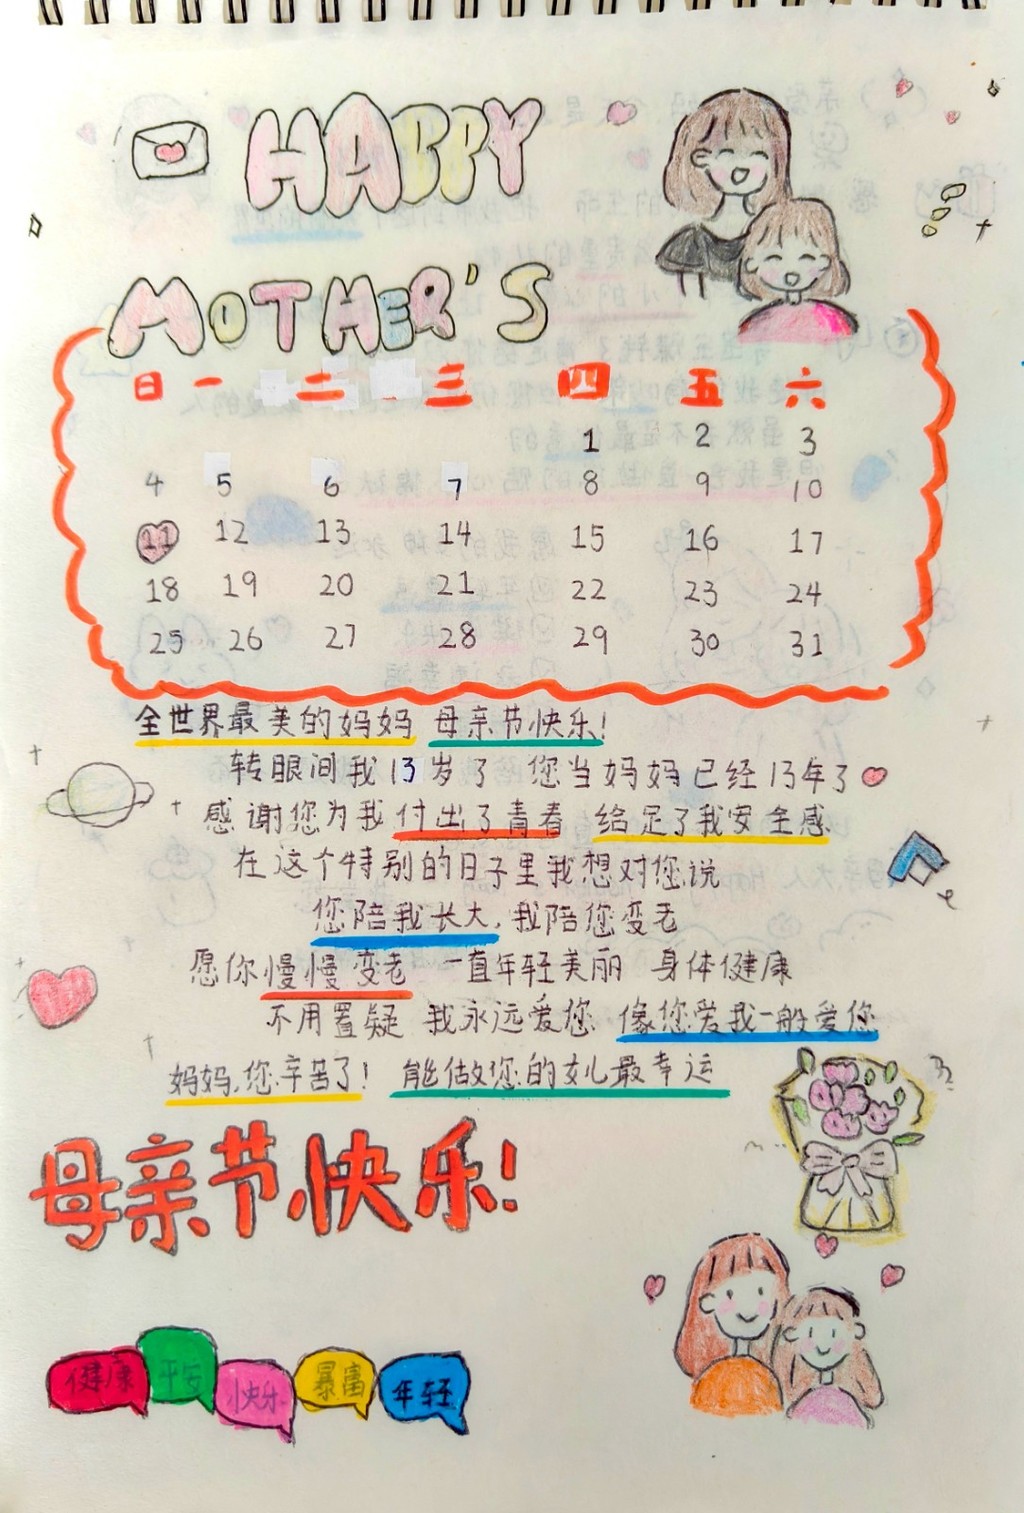 HAPPY
MOTHER'S
日 一 二 三 四 五 六
1 2 3
4 5 6 7 8 9 10
11 12 13 14 15 16 17
18 19 20 21 22 23 24
25 26 27 28 29 30 31
全世界最美的妈妈 母亲节快乐!
转眼间我13岁了 您当妈妈已经13年了
感谢您为我付出了青春 给足了我安全感
在这个特别的日子里我想对您说
您陪我长大,我陪您变老
愿你慢慢变老 一直年轻美丽 身体健康
不用置疑 我永远爱您 像您爱我一般爱您
妈妈,您辛苦了! 能做您的女儿最幸运
母亲节快乐!
健康 平安 快乐 暴富 年轻